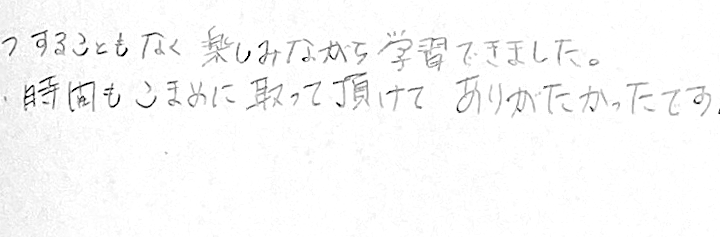 つすることもなく 楽しみながら学習できました。
時間もこまめに取って頂けて ありがたかったです